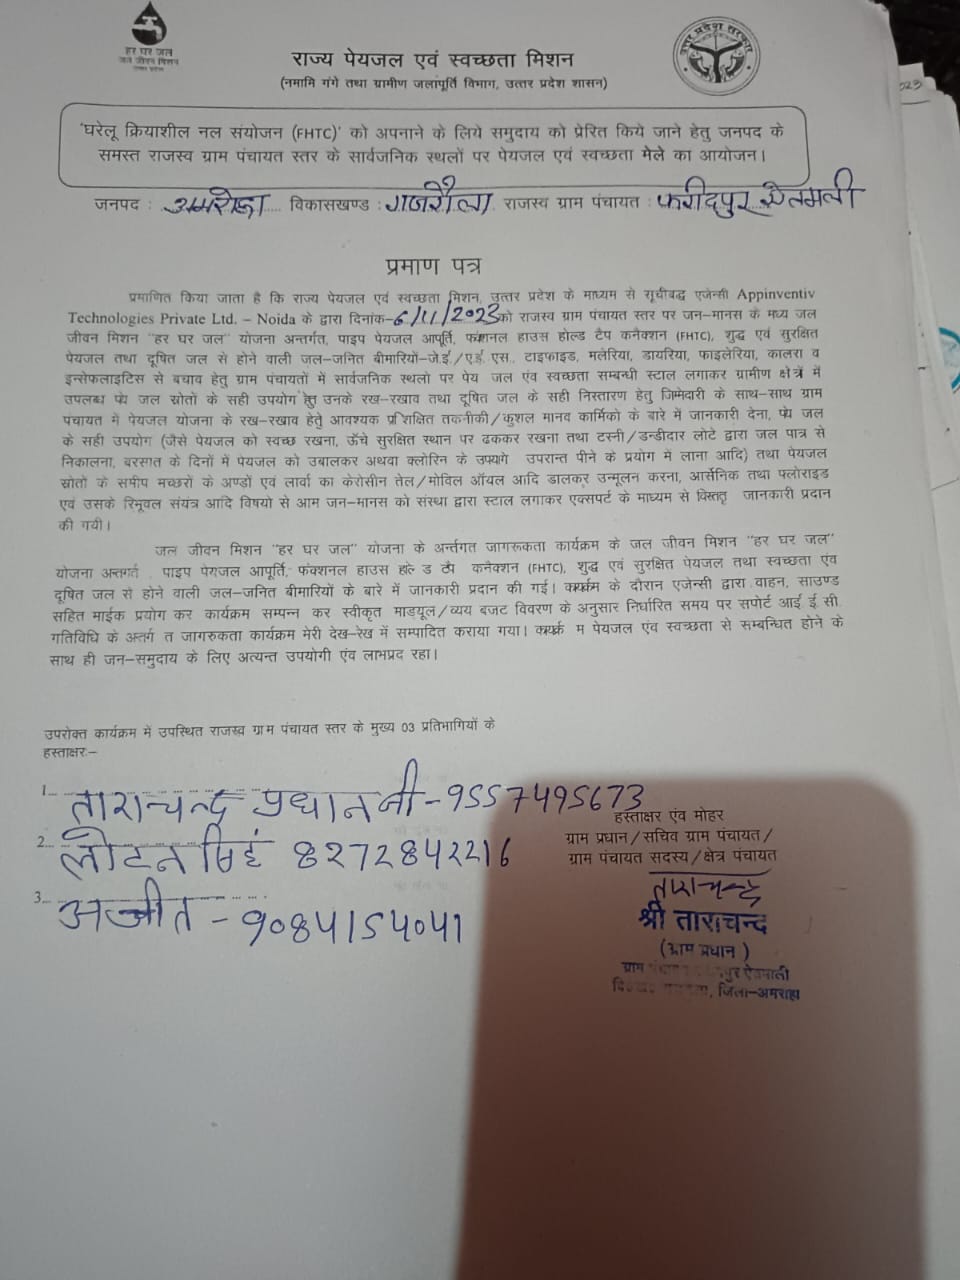 हर घर जल
जल जीवन मिशन
उत्तर प्रदेश
उत्तर प्रदेश सरकार
राज्य पेयजल एवं स्वच्छता मिशन
(नमामि गंगे तथा ग्रामीण जलापूर्ति विभाग, उत्तर प्रदेश शासन)
023
'घरेलू क्रियाशील नल संयोजन (FHTC)' को अपनाने के लिये समुदाय को प्रेरित किये जाने हेतु जनपद के
समस्त राजस्व ग्राम पंचायत स्तर के सार्वजनिक स्थलों पर पेयजल एवं स्वच्छता मेले का आयोजन।
जनपद : अमरोहा विकासखण्ड : गजरौला राजस्व ग्राम पंचायत : फरीदपुर
प्रमाण पत्र
प्रमाणित किया जाता है कि राज्य पेयजल एवं स्वच्छता मिशन, उत्तर प्रदेश के माध्यम से सूचीबद्ध एजेन्सी Appinventiv
Technologies Private Ltd. – Noida के द्वारा दिनांक-6/11/2023को राजस्व ग्राम पंचायत स्तर पर जन-मानस के मध्य जल
जीवन मिशन "हर घर जल" योजना अन्तर्गत, पाइप पेयजल आपूर्ति, फंक्शनल हाउस होल्ड टैप कनैक्शन (FHTC), शुद्ध एवं सुरक्षित
पेयजल तथा दूषित जल से होने वाली जल-जनित बीमारियों-जे.ई./ए.ई. एस., टाइफाइड, मलेरिया, डायरिया, फाइलेरिया, कालरा व
इन्सेफलाइटिस से बचाव हेतु ग्राम पंचायतों में सार्वजनिक स्थलो पर पेय जल एंव स्वच्छता सम्बन्धी स्टाल लगाकर ग्रामीण क्षेत्रें में
उपलब्ध पेय जल स्रोतों के सही उपयोग हेतु उनके रख-रखाव तथा दूषित जल के सही निस्तारण हेतु जिम्मेदारी के साथ-साथ ग्राम
पंचायत में पेयजल योजना के रख-रखाव हेतु आवश्यक प्रशिक्षित तकनीकी/कुशल मानव कार्मिको के बारे में जानकारी देना, पेय जल
के सही उपयोग (जैसे पेयजल को स्वच्छ रखना, ऊँचे सुरक्षित स्थान पर ढककर रखना तथा टस्नी/डन्डीदार लोटे द्वारा जल पात्र से
निकालना, बरसात के दिनों में पेयजल को उबालकर अथवा क्लोरिन के उपयोग उपरान्त पीने के प्रयोग में लाना आदि) तथा पेयजल
स्रोतों के समीप मच्छरों के अण्डों एवं लार्वा का केरोसीन तेल/मोविल ऑयल आदि डालकर उन्मूलन करना, आर्सेनिक तथा फ्लोराइड
एवं उसके रिमूवल संयंत्र आदि विषयो से आम जन-मानस को संस्था द्वारा स्टाल लगाकर एक्सपर्ट के माध्यम से विस्तृत जानकारी प्रदान
की गयी।
जल जीवन मिशन "हर घर जल" योजना के अर्न्तगत जागरूकता कार्यक्रम के जल जीवन मिशन "हर घर जल"
योजना अन्तगर्त , पाइप पेयजल आपूर्ति, फंक्शनल हाउस होल्ड टैप कनैक्शन (FHTC), शुद्ध एवं सुरक्षित पेयजल तथा स्वच्छता एंव
दूषित जल से होने वाली जल-जनित बीमारियों के बारे में जानकारी प्रदान की गई। कार्यक्रम के दौरान एजेन्सी द्वारा वाहन, साउण्ड
सहित माईक प्रयोग कर कार्यक्रम सम्पन्न कर स्वीकृत माड्यूल/व्यय बजट विवरण के अनुसार निर्धारित समय पर सपोर्ट आई.ई.सी.
गतिविधि के अन्तर्गत जागरुकता कार्यक्रम मेरी देख-रेख में सम्पादित कराया गया। कार्यक्रम पेयजल एंव स्वच्छता से सम्बन्धित होने के
साथ ही जन-समुदाय के लिए अत्यन्त उपयोगी एंव लाभप्रद रहा।
उपरोक्त कार्यक्रम में उपस्थित राजस्व ग्राम पंचायत स्तर के मुख्य 03 प्रतिभागियों के
हस्ताक्षर:-
1... ताराचन्द्र प्रधान जी-9557495673
2... लोटन सिहं 8272842216
3... अजीत-9084154041
हस्ताक्षर एंव मोहर
ग्राम प्रधान/सचिव ग्राम पंचायत/
ग्राम पंचायत सदस्य/क्षेत्र पंचायत
ताराचन्द्र
श्री ताराचन्द
(ग्राम प्रधान)
ग्राम
जिला-अमरोहा